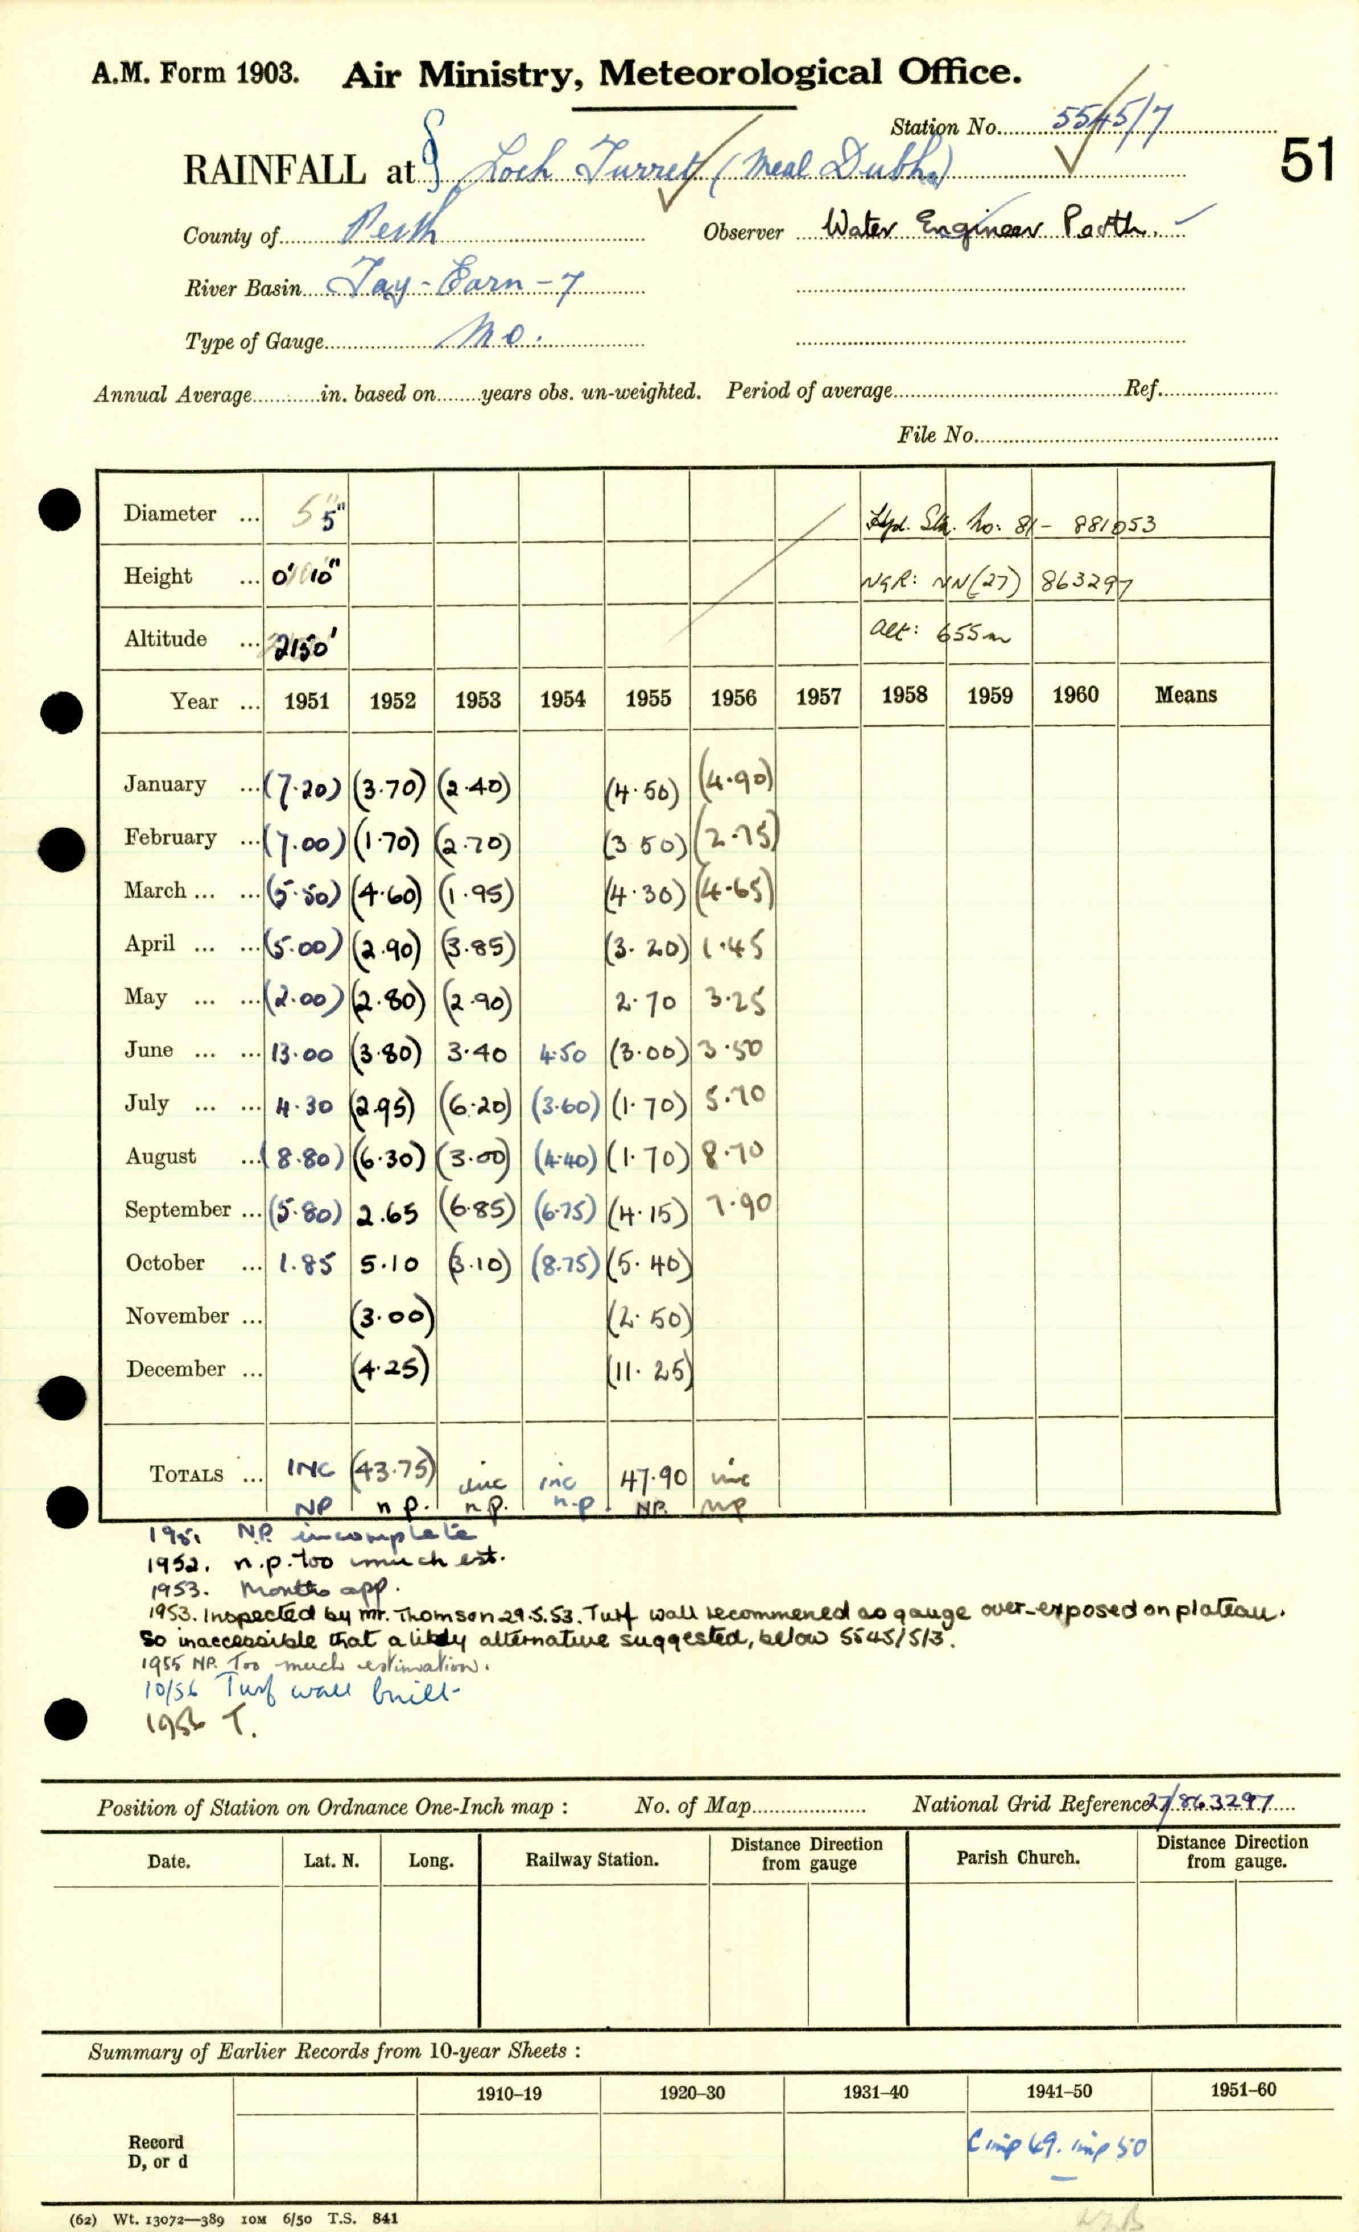 A.M. Form 1903. Air Ministry, Meteorological Office.
Station No. 5545/7
51
RAINFALL at § Loch Turret (Meal Dubh)
County of Perth Observer Water Engineer Perth.
River Basin Tay - Earn - 7
Type of Gauge Mo.
Annual Average in. based on years obs. un-weighted. Period of average Ref.
File No.
Diameter ... 5" 5" Hyd. Stn. No: 81 - 881053
Height ... 0' 10" NGR: NN(27) 863297
Altitude ... 2150' Alt: 655m
Year ... 1951 1952 1953 1954 1955 1956 1957 1958 1959 1960 Means
January ... (7.20) (3.70) (2.40) (4.50) (4.90)
February ... (7.00) (1.70) (2.70) (3 50) (2.75)
March ... ... (5.50) (4.60) (1.95) (4.30) (4.65)
April ... ... (5.00) (2.90) (3.85) (3.20) 1.45
May ... ... (2.00) (2.80) (2.90) 2.70 3.25
June ... ... 13.00 (3.80) 3.40 4.50 (3.00) 3.50
July ... ... 4.30 (2.95) (6.20) (3.60) (1.70) 5.70
August ... (8.80) (6.30) (3.00) (4.40) (1.70) 8.70
September ... (5.80) 2.65 (6.85) (6.75) (4.15) 7.90
October ... 1.85 5.10 (3.10) (8.75) (5.40)
November ... (3.00) (2.50)
December ... (4.25) (11.25)
TOTALS ... INC (43.75) inc inc 47.90 inc
NP n p. n p. n.p. NP. np
1951 N.P. incomplete
1952. n.p. too much est.
1953. Months app.
1953. Inspected by Mr. Thomson 29.5.53. Turf wall recommened as gauge over-exposed on plateau.
So inaccessible that a likely alternative suggested, below 5545/5/3.
1955 NP. Too much estimation.
10/56 Turf wall built
1956 T.
Position of Station on Ordnance One-Inch map : No. of Map National Grid Reference 27/863297
Date. Lat. N. Long. Railway Station. Distance Direction from gauge Parish Church. Distance Direction from gauge.
Summary of Earlier Records from 10-year Sheets :
1910–19 1920–30 1931–40 1941–50 1951–60
Record D, or d C inp 49. inp 50
(62) Wt. 13072—389 10M 6/50 T.S. 841